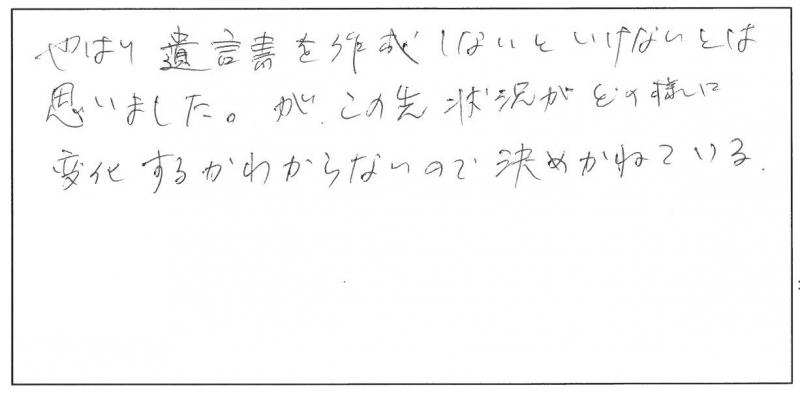 やはり遺言書を作成しないといけないとは
思いました。が、この先状況がどの様に
変化するかわからないので決めかねている.